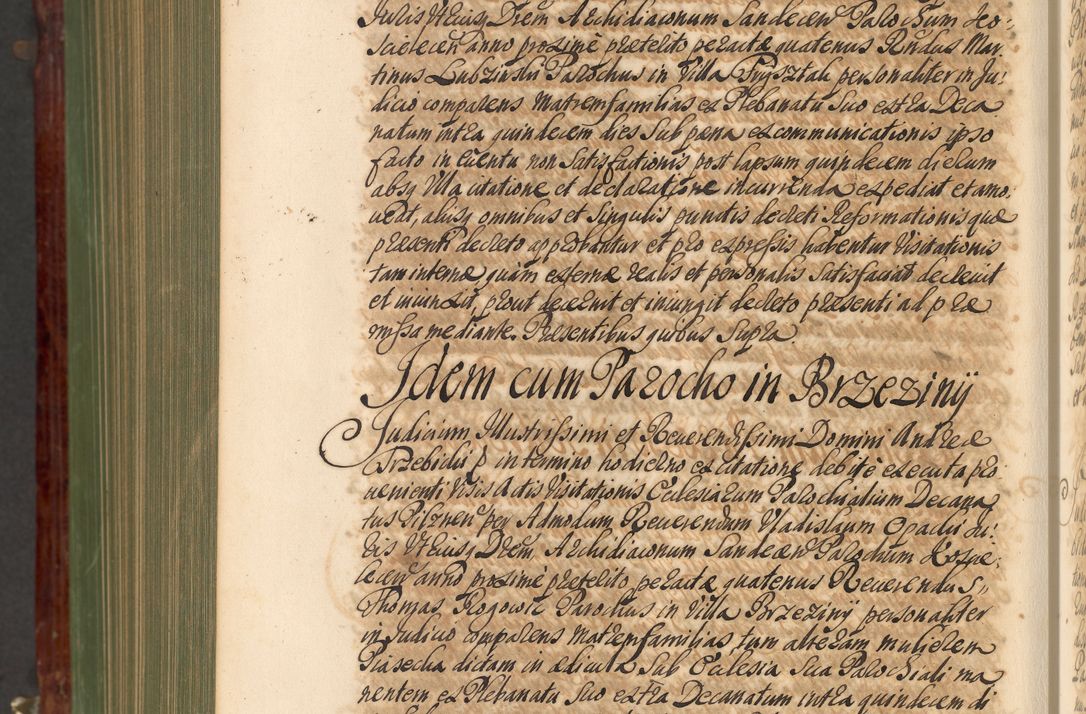 Juris Utriusq Drem Archidiaconum Sandecen Paro
cielecen anno proxime preterito peractæ quatenus Rndus Mar
tinus Lubzinski Parochus in Villa Przysztak personaliter in Ju
dicio comparens Matremfamilias ex Plebanatu Suo extra Deca
natum intra quindecem dies Sub pæna excommunicationis ipso
facto in euentu non Satisfactionis post lapsum quindecem dierum
absq Ulla citatione et declaratione incurrenda expediat et amo
ueat, alijsq omnibus et Singulis punctis decreti Reformationis quæ
præsenti decreto approbantur et pro expressis habentur Visitationis
tam internæ quam externæ realis et personalis Satisfaciat decreuit
et iniunxit, prout decernit et iniungit decreto præsenti ad præ
missa mediante. Præsentibus quibus Supra.
Idem cum Parocho in Brzezinÿ
Judicium Illustrissimi et Reuerendissimi Domini Andreæ
Przebidii p in termino hodierno ex citatione debite executa pro
uenienti Visis Actis Visitationis Ecclesiarum Parochialium Decana
tus Pilznen per Admodum Reuerendum Vladislaum Opacki Ju
ris Utriusq Drem Archidiaconum Sandecen Parochum
lecen anno proxime preterito peractæ quatenus Reuerendus
Thomas Rogowic Parochus in Villa Brzezinÿ personaliter
in Judicio comparens Matremfamilias tum alteram mulierem
Piasecka dictam in ædicula Sub Ecclesia Sua Parochiali ma
nentem ex Plebanatu Suo extra Decanatum intra quindecem di